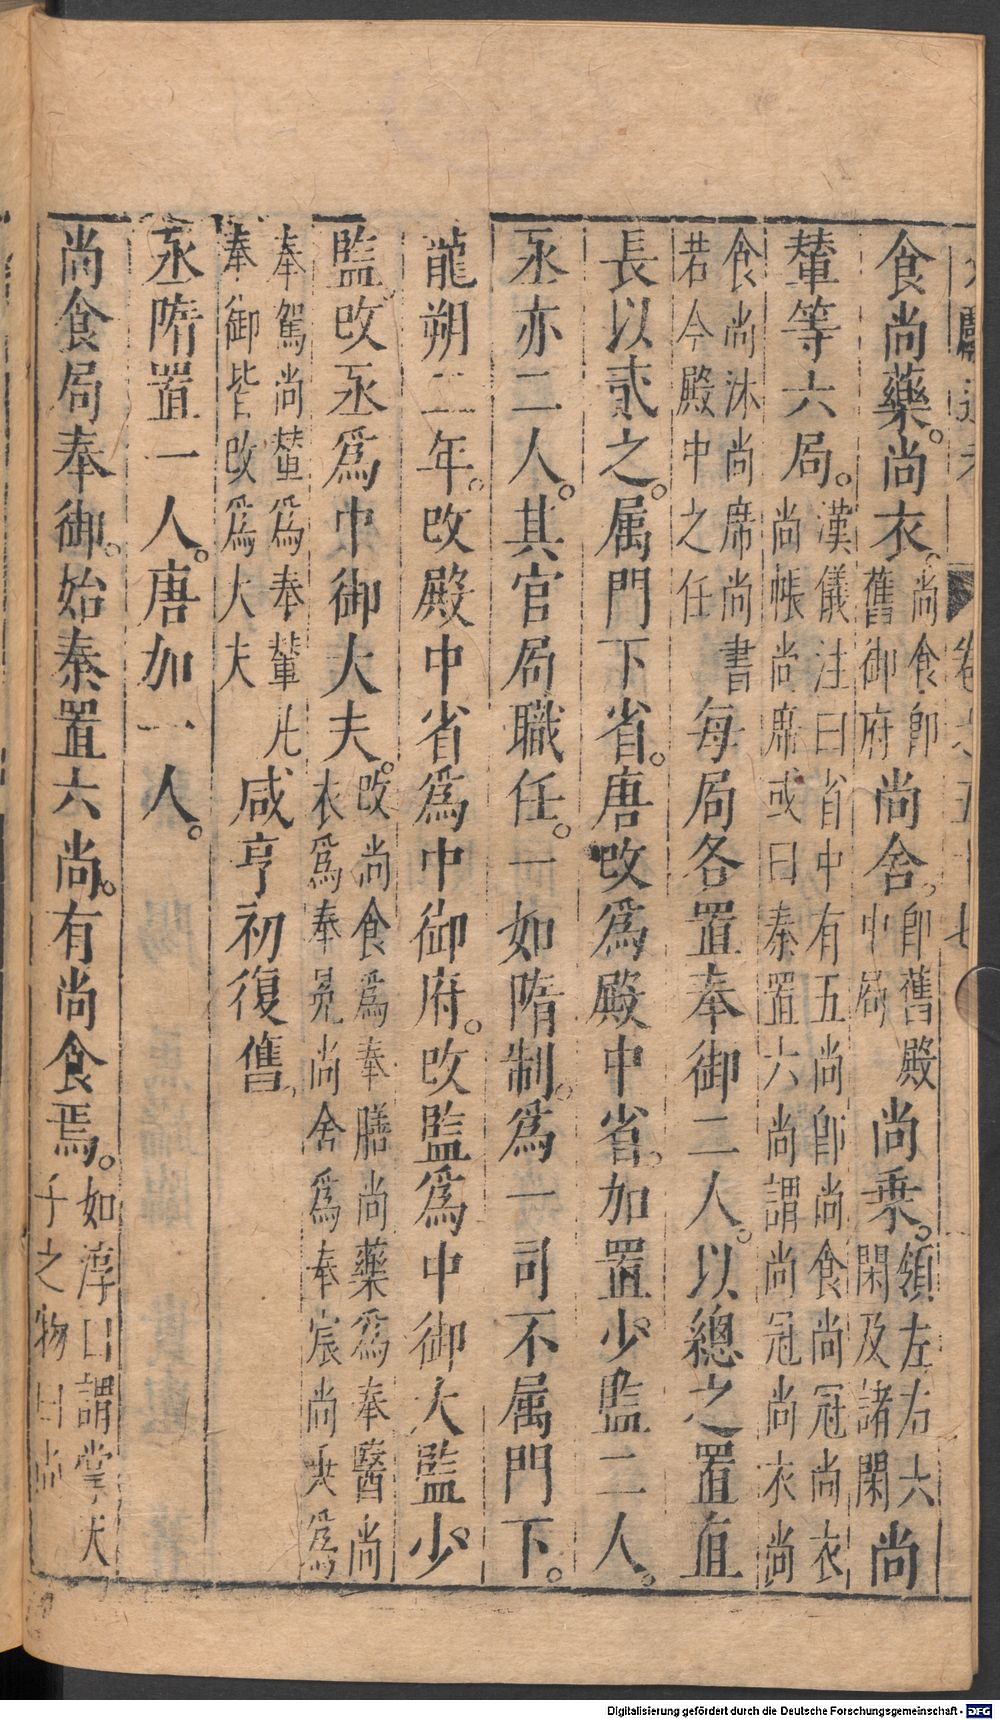 食尚藥。尚衣。尚食即舊御府尚舍。即舊殿中局尚乗。領左右六閑及諸閑尚
輦等六局。漢儀注曰省中有五尚即尚食尚冠尚衣尚帳尚席或曰秦置六尚謂尚冠尚衣尚
食尚沐尚席尚書若今殿中之任每局各置奉御二人。以總之置直
長以貳之。属門下省。唐改爲殿中省。加置少監二人。
丞亦二人。其官局職任。一如隋制。爲一司不属門下。
龍朔二年。改殿中省爲中御府。改監爲中御大監少
監改丞爲中御大夫。改尚食爲奉膳尚藥爲奉醫尚衣爲奉冕尚舍爲奉扆尚乗爲
奉駕尚輦爲奉輦凡奉御皆改爲大夫咸亨初復舊。
丞隋置一人。唐加一人。
尚食局奉御。始秦置六尚。有尚食焉。如淳曰謂掌天子之物曰尚
Digitalisierung gefördert durch die Deutsche Forschungsgemeinschaft - DFG